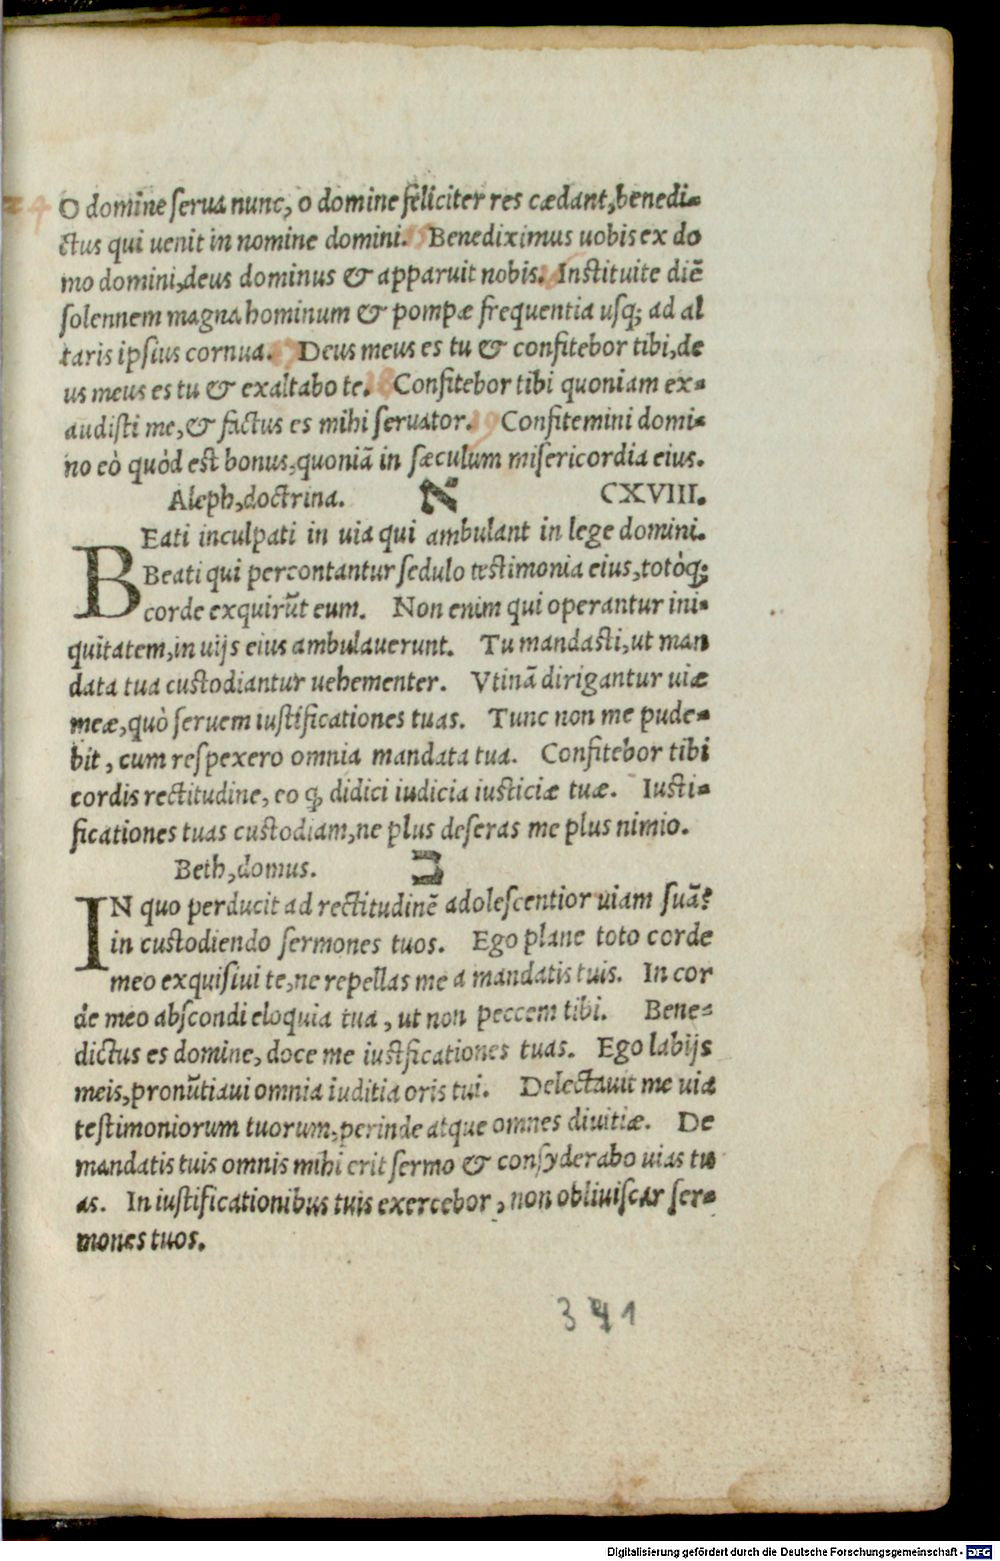 24 O domine serua nunc, o domine feliciter res cædant, benedi-
ctus qui uenit in nomine domini. Benediximus uobis ex do
mo domini, deus dominus & apparuit nobis. Instituite diē
solennem magna hominum & pompæ frequentia usq; ad al
taris ipsius cornua. Deus meus es tu & confitebor tibi, de
us meus es tu & exaltabo te. 18 Confitebor tibi quoniam ex-
audisti me, & factus es mihi seruator. 19 Confitemini domi-
no eò quòd est bonus, quoniā in sæculum misericordia eius.
Aleph, doctrina. א CXVIII.
BEati inculpati in uia qui ambulant in lege domini.
Beati qui percontantur sedulo testimonia eius, totòq;
corde exquirūt eum. Non enim qui operantur ini-
quitatem, in uijs eius ambulauerunt. Tu mandasti, ut man
data tua custodiantur uehementer. Vtinā dirigantur uiæ
meæ, quò seruem iustificationes tuas. Tunc non me pude-
bit, cum respexero omnia mandata tua. Confitebor tibi
cordis rectitudine, eo q, didici iudicia iusticiæ tuæ. Iusti-
ficationes tuas custodiam, ne plus deseras me plus nimio.
Beth, domus. ב
IN quo perducit ad rectitudinē adolescentior uiam suā?
in custodiendo sermones tuos. Ego plane toto corde
meo exquisiui te, ne repellas me a mandatis tuis. In cor
de meo abscondi eloquia tua, ut non peccem tibi. Bene-
dictus es domine, doce me iustficationes tuas. Ego labijs
meis, pronūtiaui omnia iuditia oris tui. Delectauit me uia
testimoniorum tuorum, perinde atque omnes diuitiæ. De
mandatis tuis omnis mihi erit sermo & consyderabo uias tu
as. In iustificationibus tuis exercebor, non obliuiscar ser-
mones tuos.
341
Digitalisierung gefördert durch die Deutsche Forschungsgemeinschaft - DFG